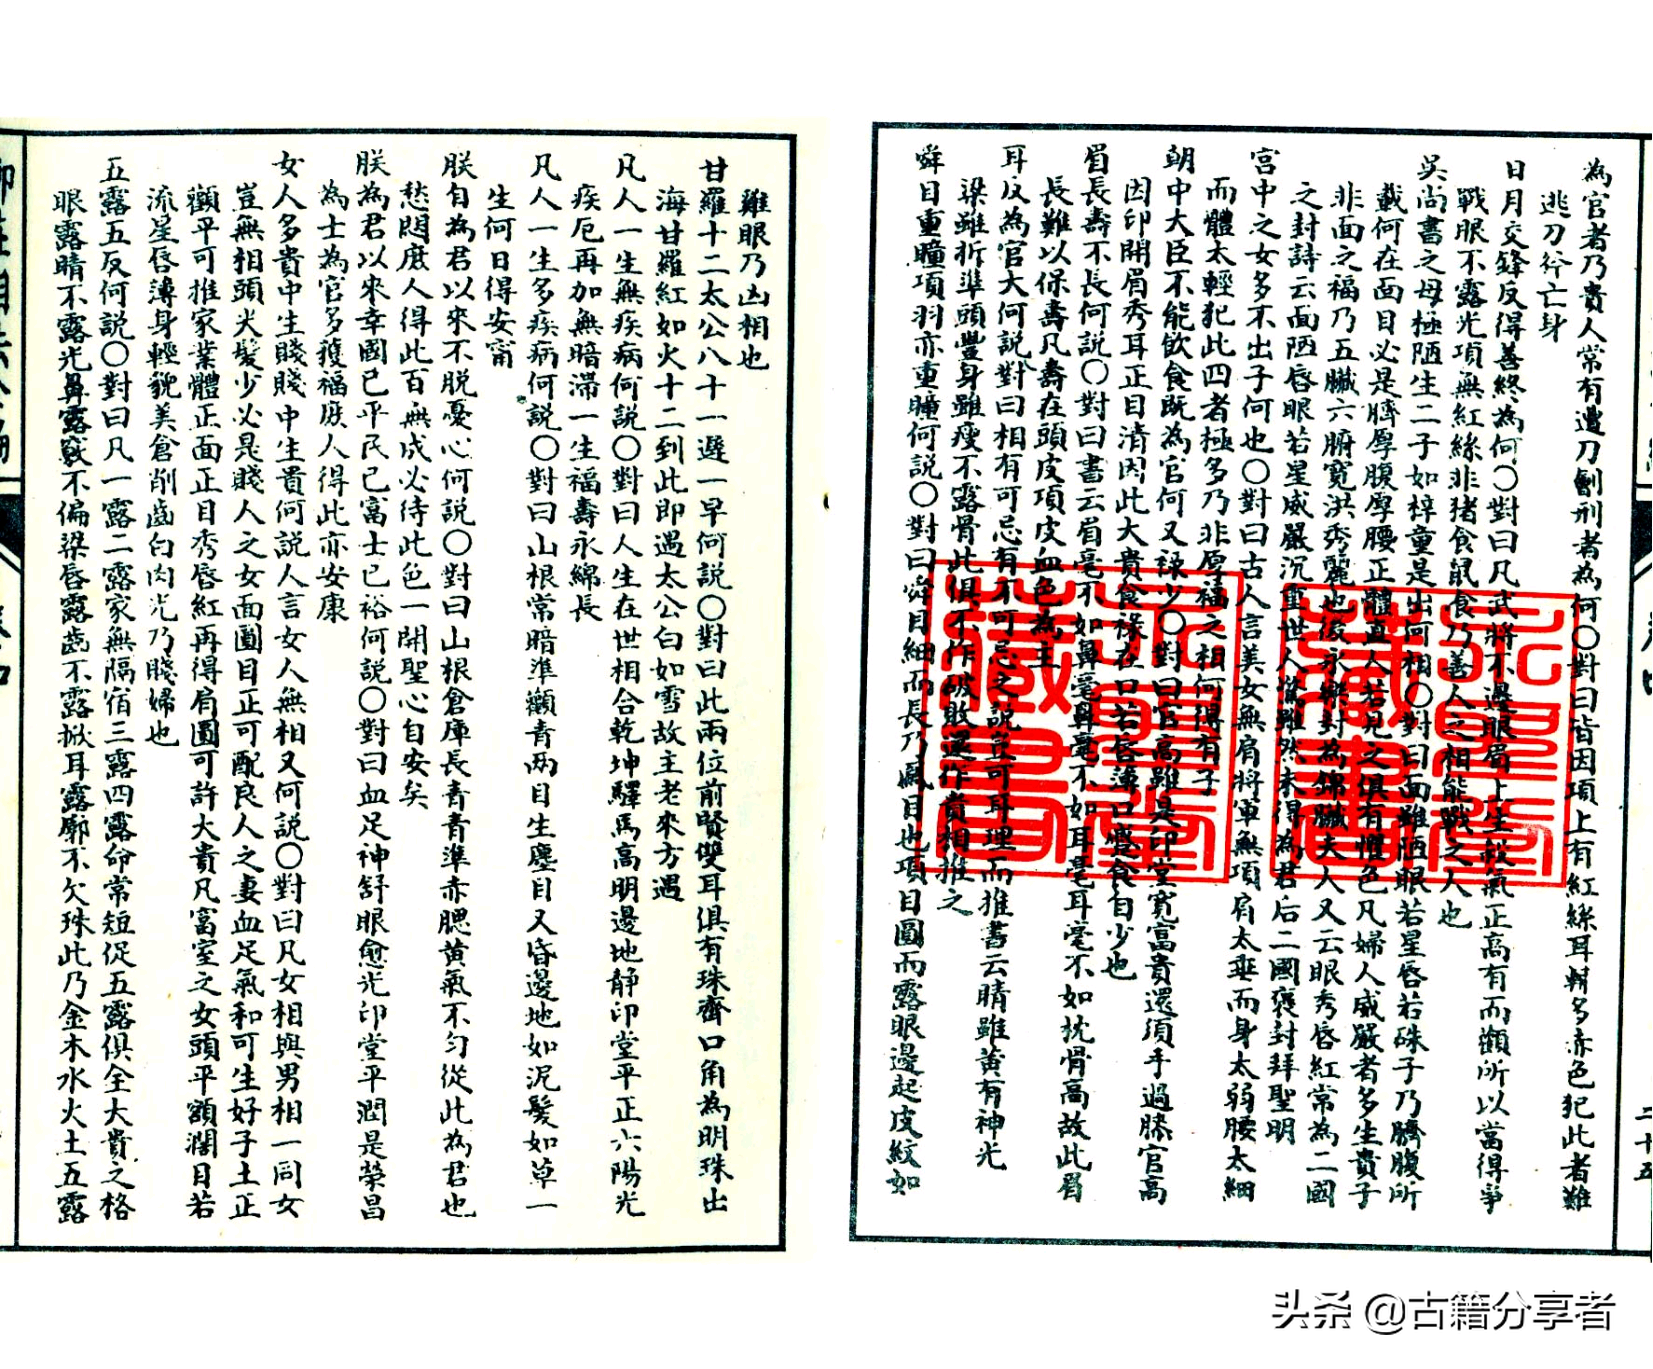 為官者乃貴人常有遭刀劊刑者為何〇對曰皆因項上有紅絲耳輪多赤色犯此者難
逃刀斧亡身
日月交鋒反得善終為何〇對曰凡武將不邊眼眉上生殺氣正高有而顴所以當得爭
戰眼不露光項無紅絲非猪食鼠食乃善人之相能戰之人也
吳尚書之母極陋生二子如梓童是出何相〇對曰面雖陋眼若星唇若硃子乃臍腹所
載何在面目必是臍厚腹厚腰正體直人若見之俱有懼色凡婦人威嚴者多生貴子
非面之福乃五臟六腑寬洪秀麗也後永樂封為錦臟夫人又云眼秀唇紅常為二國
之封詩云面陋唇眼若星威嚴沉重世人驚雖然未得為君后二國褒封拜聖明
宮中之女多不出子何也〇對曰古人言美女無肩將軍無項肩太垂而身太弱腰太細
而體太輕犯此四者極多乃非厚福之相何得有子
朝中大臣不能飲食既為官何又祿少〇對曰官高雖是印堂寬富貴還須手過膝官高
因印開眉秀耳正目清因此大貴食祿在口若唇薄口感食自少也
眉長壽不長何說〇對曰書云眉毫不如鼻毫鼻毫不如耳毫耳毫不如枕骨高故此眉
長難以保壽凡壽在頭皮項皮血色為主
耳反為官大何說對曰相有可忌有不可忌之說豈可耳理而推書云睛雖黃有神光
梁雖折準頭豐身雖瘦不露骨此俱不作破敗還作貴相推之
舜目重瞳項羽亦重瞳何説〇對曰舜目細而長乃鳳目也項目圓而露眼邊起皮紋如
雞眼乃凶相也
甘羅十二太公八十一遲一早何説〇對曰此兩位前賢雙耳俱有珠齊口角為明珠出
海甘羅紅如火十二到此即遇太公白如雪故主老來方遇
凡人一生無疾病何説〇對曰人生在世相合乾坤驛馬高明邊地靜印堂平正六陽光
疾厄再加無暗滯一生福壽永綿長
凡人一生多疾病何説〇對曰山根常暗準顴青兩目生塵目又昏邊地如泥髮如草一
生何日得安甯
朕自為君以來不脱憂心何説〇對曰山根倉庫長青青準赤腮黃氣不匀從此為君也
愁悶庶人得此百無成必待此色一開聖心自安矣
朕為君以來幸國已平民已富士已裕何説〇對曰血足神舒眼愈光印堂平潤是榮昌
為士為官多獲福庶人得此亦安康
女人多貴中生賤賤中生貴何説人言女人無相又何説〇對曰凡女相與男相一同女
豈無相頭尖髮少必是賤人之女面圓目正可配良人之妻血足氣和可生好子土正
顴平可推家業體正面正目秀唇紅再得肩圓可許大貴凡富室之女頭平額濶目若
流星唇薄身輕貌美倉削齒白肉光乃賤婦也
五露五反何説〇對曰凡一露二露家無隔宿三露四露命常短促五露俱全大貴之格
眼露睛不露光鼻露竅不偏梁唇露齒不露掀耳露廓不欠珠此乃金木水火土五露
二十五
头条 @古籍分享者